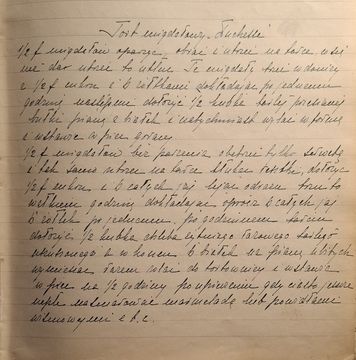 Tort migdałowy. Duchesse
1/2 f migdałów oparzyć, obrać i utrzeć na tarce wsypać
nie dać utrzeć to w tłuc. Te migdały trzeć w donicy
z 1/2 f cukru i 6 żółtkami dokładając po jednemu
godzinę następnie dołożyć 1/2 kubka tartej
bułki pianę z białek i natychmiast wlać w formę
i wstawić w piec gorący.
1/2 f migdałów bez parzenia, obetrzeć tylko ścierką
i tak samo utrzeć na tarce, dołożyć
1/2 f cukru i 6 całych jaj odrazu trzeć to
godzinę dokładając oprócz 6 całych jaj
6 żółtek po jednemu. po godzinnem tarciu
dołożyć 1/2 kubka chleba żytniego tartego
a w końcu 6 białek na pianę ubitych
wymieszać razem wlać do tortownicy i wstawić
w piec na 1/2 godziny po upieczeniu gdy ciasto jeszcze
ciepłe nasmarować marmeladą lub powidłami
wiśniowymi e.t.c.